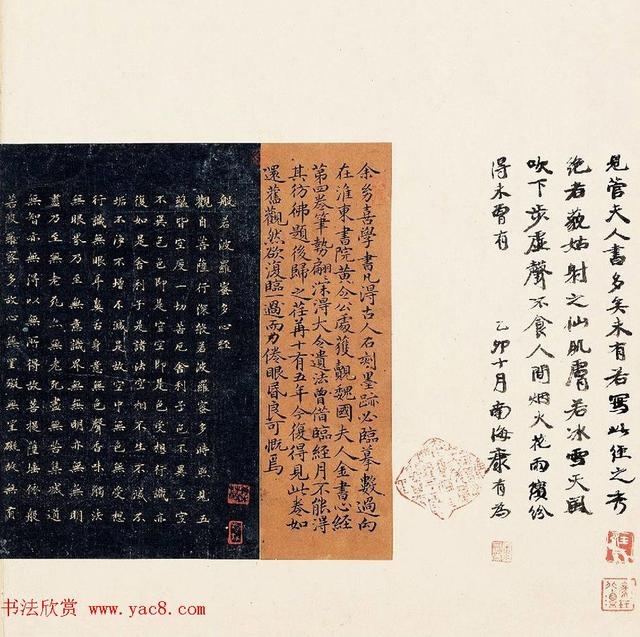 見管夫人書多矣未有若寫此經之秀
絕者藐姑射之仙肌膚若冰雪天風
吹下步虛聲不食人間烟火花雨繽紛
得未曾有 乙卯十月南海康有為
余幼喜學書凡得古人石刻墨跡必臨摹數過向
在淮東書院黃令公處獲觀魏國夫人金書心經
第四卷筆勢翩翩深得大令遺法曾借臨經月不能得
其彷彿題後歸之荏苒十有五年今復得見此卷如
還舊觀然欲復臨一過而力倦眼昏良可慨焉
般若波羅蜜多心經
觀自在菩薩行深般若波羅蜜多時照見五
蘊皆空度一切苦厄舍利子色不異空空
不異色色即是空空即是色受想行識亦
復如是舍利子是諸法空相不生不滅不
垢不淨不增不減是故空中無色無受想
行識無眼耳鼻舌身意無色聲香味觸法
無眼界乃至無意識界無無明亦無無明
盡乃至無老死亦無老死盡無苦集滅道
無智亦無得以無所得故菩提薩埵依般
若波羅蜜多故心無罣礙無罣礙故無有
书法欣赏 www.yac8.com